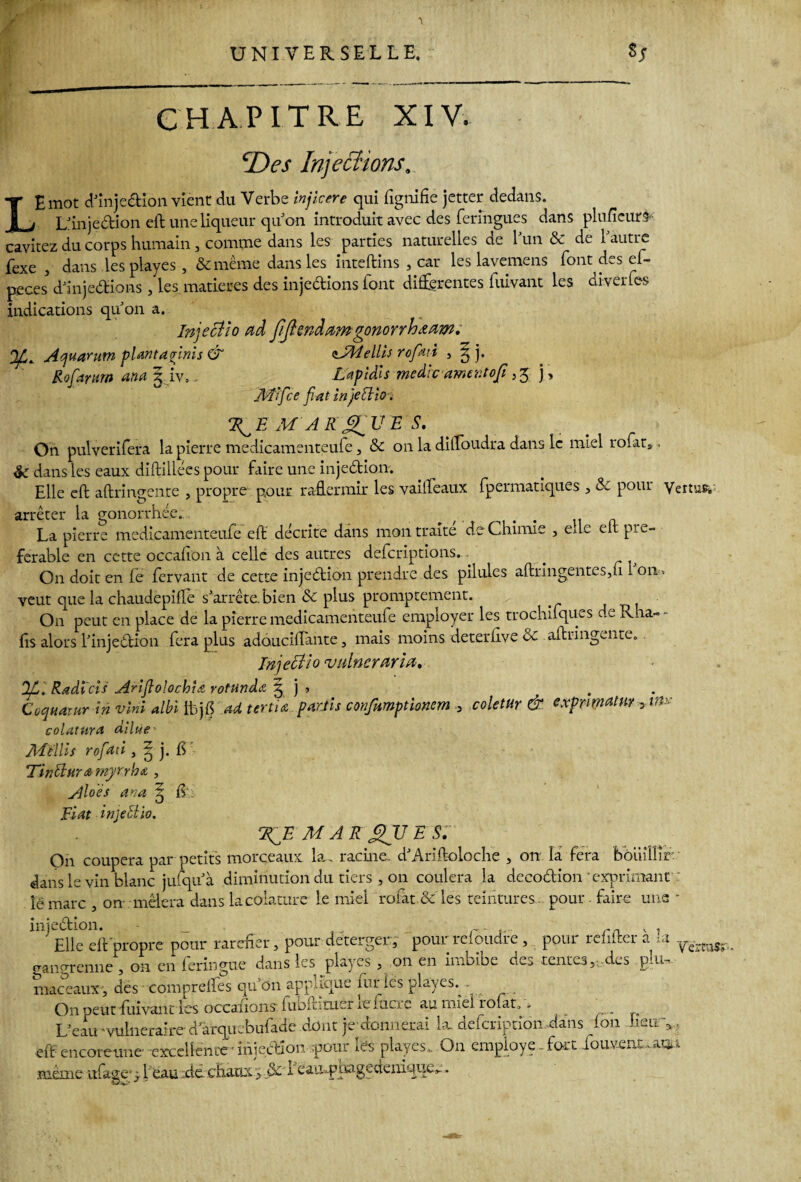 UNIVERSELLE. 85
CHAPITRE XIV.
Des Injections.
LE mot d'injection vient du Verbe injicere qui signifie jetter dedans.
L'injection est une liqueur qu'on introduit avec des seringues dans plusieurs
cavitez du corps humain, comme dans les parties naturelles de l'un & de l'autre
sexe, dans les playes, & même dans les intestins, car les lavemens sont des es-
peces d'injections, les matieres des injections sont differentes suivant les diverses
indications qu'on a.
Injectio ad sistendam gonorrhæam.
℞. Aquarum plantaginis & Mellis rosati, ℥ j.
Rosarum ana ℥ iv. Lapidis medicamentosi, ʒ j,
Misce fiat injectio.
REMARQUES.
On pulverisera la pierre medicamenteuse, & on la dissoudra dans le miel rosat,
& dans les eaux distillées pour faire une injection.
Elle est astringente, propre pour raffermir les vaisseaux spermatiques, & pour Vertus.
arrêter la gonorrhée.
La pierre medicamenteuse est décrite dans mon traité de Chimie, elle est pre-
ferable en cette occasion à celle des autres descriptions.
On doit en se servant de cette injection prendre des pilules astringentes, si l'on
veut que la chaudepisse s'arrête bien & plus promptement.
On peut en place de la pierre medicamenteuse employer les trochisques de Rha-
sis alors l'injection sera plus adoucissante, mais moins detersive & astringente.
Injectio vulneraria.
℞. Radicis Aristolochiæ rotundæ ℥ j,
Coquatur in vini albi ℔jß ad tertiæ partis consumptionem, coletur & exprimatur, in
colatura dilue
Mellis rosati, ℥ j. ß
Tincturæ myrrhæ,
Aloës ana ℥ ß.
Fiat injectio.
REMARQUES.
On coupera par petits morceaux la racine d'Aristoloche, on la fera boüillir
dans le vin blanc jusqu'à diminution du tiers, on coulera la decoction exprimant
le marc, on mêlera dans la colature le miel rosat & les teintures pour faire une
injection.
Elle est propre pour rarefier, pour deterger, pour resoudre, pour resister à la Vertus.
gangrenne, on en seringue dans les playes, on en imbibe des tentes, des plu-
maceaux, des compresses qu'on applique sur les playes.
On peut suivant les occasions substituer le sucre au miel rosat.
L'eau vulneraire d'arquebusade dont je donnerai la description dans son lieu,
est encore une excellente injection pour les playes. On employe fort souvent au
même usage, l'eau de chaux, & l'eau phagedenique.